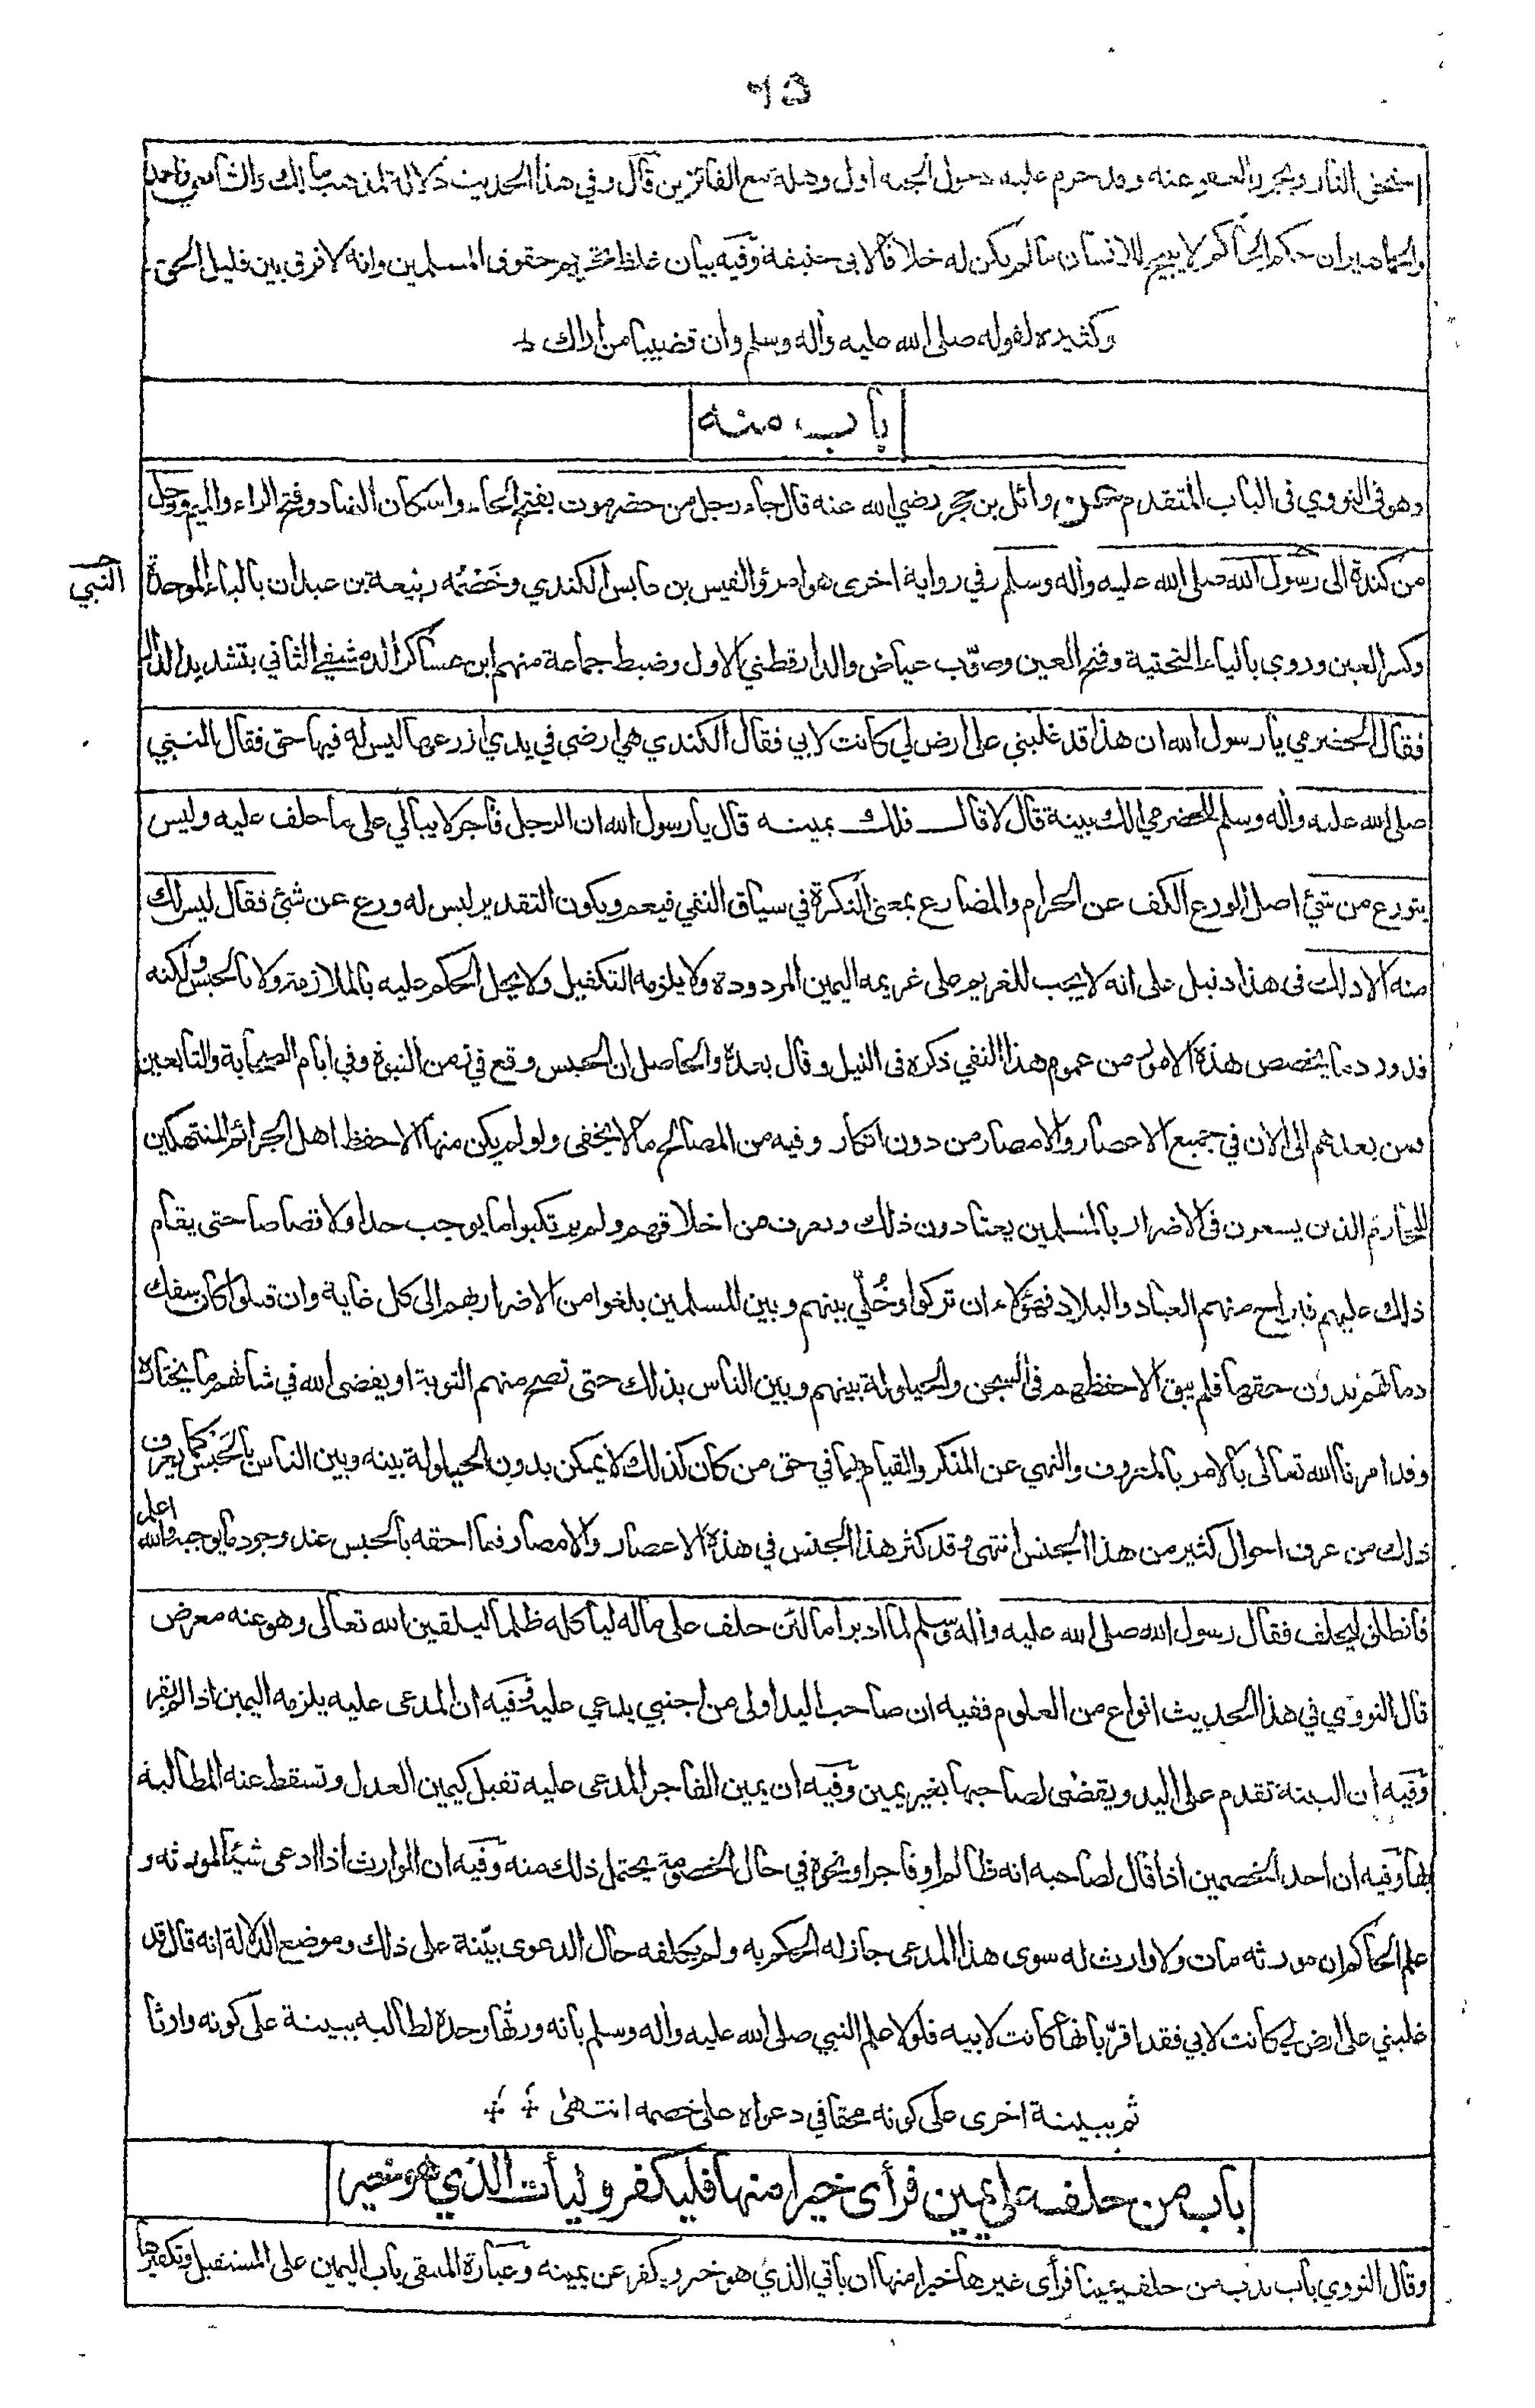 ٦٥
استحق النار ويجوز العفو عنه وقد حرم عليه دخول الجنة اول وهلة مع الفائزين قال وفي هذا الحديث دلالة لمذهب مالك والشافعي واحمد
والجماهير ان حكم الحاكم لا يبيح للانسان ما لم يكن له خلافا لابي حنيفة وفيه بيان غلظ تحريم حقوق المسلمين وانه لا فرق بين قليل الحق
وكثيره لقوله صلى الله عليه واله وسلم وان قضيبا من اراك
باب منه
وهو في النووي في الباب المتقدم عن وائل بن حجر رضي الله عنه قال جاء رجل من حضرموت بفتح الحاء واسكان الضاد وفتح الراء والميم ورجل
من كندة الى رسول الله صلى الله عليه واله وسلم وفي رواية اخرى هو امرؤ القيس بن عابس الكندي وخصمه ربيعة بن عبدان بالباء الموحدة
النبي
وكسر العين وروي بالياء التحتية وفتح العين وصوّب عياض والدارقطني الاول وضبط جماعة منهم ابن عساكر الدمشقي الثاني بتشديد الدال
فقال الحضرمي يا رسول الله ان هذا قد غلبني على ارض لي كانت لابي فقال الكندي هي ارضي في يدي ازرعها ليس له فيها حق فقال النبي
صلى الله عليه واله وسلم للحضرمي الك بينة قال لا قال فلك يمينه قال يا رسول الله ان الرجل فاجر لا يبالي على ما حلف عليه وليس
يتورع من شئ اصل الورع الكف عن الحرام والمضارع بمعنى النكرة في سياق النفي فيعم ويكون التقدير ليس له ورع عن شئ فقال ليس لك
منه الا ذلك في هذا دليل على انه لا يجب للغريم على غريمه اليمين المردودة ولا يلزمه التكفيل ولا يحل الحكم عليه بالملازمة ولا بالحبس ولكنه
قد ورد ما يخصص هذه الامور من عموم هذا النفي ذكره في النيل وقال بعده والحاصل ان الحبس وقع في زمن النبوة وفي ايام الصحابة والتابعين
ومن بعدهم الى الان في جميع الاعصار والامصار من دون انكار وفيه من المصالح ما لا يخفى ولو لم يكن منها الا حفظ اهل الجرائم المنتهكين
للمحارم الذين يسعون في الاضرار بالمسلمين يعتادون ذلك ويعرف من اخلاقهم ولم يرتكبوا ما يوجب حدا ولا قصاصا حتى يقام
ذلك عليهم فيراح منهم العباد والبلاد فهؤلاء ان تركوا وخُلّي بينهم وبين المسلمين بلغوا من الاضرار بهم الى كل غاية وان قتلوا كان سفك
دمائهم بدون حقها فلم يبق الا حفظهم في السجن والحيلولة بينهم وبين الناس بذلك حتى تصح منهم التوبة او يقضي الله في شانهم ما يختاره
وقد امرنا الله تعالى بالامر بالمعروف والنهي عن المنكر والقيام بهما في حق من كان كذلك لا يمكن بدون الحيلولة بينه وبين الناس بالحبس كما يعرف
ذلك من عرف احوال كثير من هذا الجنس انتهى وقد كثر هذا الجنس في هذه الاعصار والامصار فما احقه بالحبس عند وجود ما يوجبه والله اعلم
فانطلق ليحلف فقال رسول الله صلى الله عليه واله وسلم لما ادبر اما لئن حلف على ماله لياكله ظلما ليلقين الله تعالى وهو عنه معرض
قال النووي في هذا الحديث انواع من العلوم ففيه ان صاحب اليد اولى من اجنبي يدعي عليه وفيه ان المدعى عليه يلزمه اليمين اذا لم يقر
وفيه ان البينة تقدم على اليد ويقضى لصاحبها بغير يمين وفيه ان يمين الفاجر المدعى عليه تقبل كيمين العدل وتسقط عنه المطالبة
بها وفيه ان احد الخصمين اذا قال لصاحبه انه ظالم او فاجر او نحوه في حال الخصومة يحتمل ذلك منه وفيه ان الوارث اذا ادعى شيئا لمورثه و
علم الحاكم ان مورثه مات ولا وارث له سوى هذا المدعى جاز له الحكم به ولم يكلفه حال الدعوى بيّنة على ذلك وموضع الدلالة انه قال قد
غلبني على ارض لي كانت لابي فقد اقرّ بانها كانت لابيه فلولا علم النبي صلى الله عليه واله وسلم بانه ورثها وحده لطالبه ببينة على كونه وارثا
ثم ببينة اخرى على كونه محقا في دعواه على خصمه انتهى
باب من حلف على يمين فرأى خيرا منها فليكفر وليأت الذي هو خير
وقال النووي باب ندب من حلف يمينا فرأى غيرها خيرا منها ان ياتي الذي هو خير ويكفر عن يمينه وعبارة المنتقى باب اليمين على المستقبل وتكفيرها